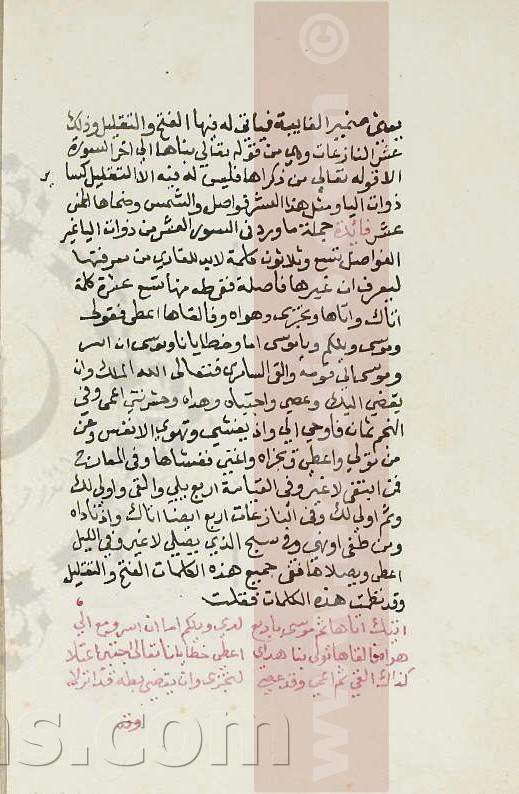 يعني ضمير الغايبة فياتي له فيها الفتح والتقليل وذلك
عشر النازعات وهي من قوله تعالى بناها الى اخر السورة
الا قوله تعالى من ذكراها فليس له فيه الا التقليل كسا
ير
ذوات اليا ومثل هذا العشر فواصل والشمس وضحاها الخمس
عشر فائدة جملة ما ورد في السور العشر من ذوات اليا غير
الفواصل تسع وثلاثون كلمة لابد للقاري من معرفتها
ليعرف ان غيرها فاصلة ففي طه منها تسع عشرة كلمة
اتاك واتاها وتجزى وهواه وفالقاها اعطى فتولى
وموسى ويلكم ويا موسى اما وخطايانا وموسى ان اسر
وموسى الى قومه والقى السامري فتعالى الله الملك وان
يقضى اليك وعصى واجتباه وهداه وحشرتني اعمى وفي
النجم ثمان فاوحى الى واذ يغشى وتهوى الانفس وعن
من تولى واعطى ويجزاه واغنى فغشاها وفي المعارج
فمن ابتغى لا غير وفي القيامة اربع بلى والقى واولى لك
وثم اولى لك وفي النازعات اربع ايضا اتاك واذ ناداه
ومن طغى ونهى وفي سبح الذي يصلى لا غير وفي الليل
اعطى ويصلاها ففي جميع هذه الكلمات الفتح والتقليل
وقد نظمت هذه الكلمات فقلت
اتيك اتاها ثم موسى لدى ويلكم اما ان اسر ومع الى
هواه فالقاها تولى هدى اعطى خطايانا تعالى اجتبى اعتلا
كذاك القى ثم اعمى وقد عصى لتجزى وان يقضى بطه قد انزلا
www. .com
©